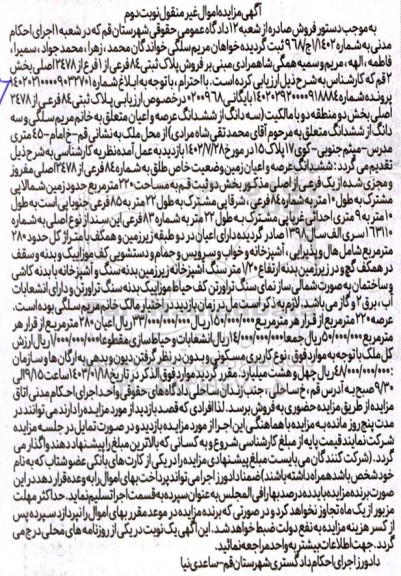 آگهی مزایده اموال غیر منقول نوبت دوم
به موجب دستور فروش صادره از شعبه ۱۲ دادگاه عمومی حقوقی شهرستان قم که در شعبه ۱ اجرای احکام
مدنی به شماره ۱۴۰۲/۱ج/۹۶۷ ثبت گردیده خواهان مریم سلگی خواندگان محمد، زهرا، محمدجواد، سمیرا،
فاطمه، الهه، مریم و سمیه همگی شاهمرادی مبنی بر فروش پلاک ثبتی ۸۴ فرعی از ۱ فرعی از ۲۴۷۸ اصلی بخش
۲ قم که کارشناس به شرح ذیل ارزیابی کرده است. با احترام، با توجه به ابلاغ شماره ۱۴۰۲۰۳۱۰۰۰۰۹۰۳۳۷۰۱
پرونده شماره ۱۴۰۲۰۳۹۲۰۰۰۰۹۱۸۸۸۴ بایگانی ۰۲۰۰۹۶۸ درخصوص ارزیابی پلاک ثبتی ۸۴ فرعی از ۲۴۷۸
اصلی بخش دو منطقه دو با مالکیت (سه دانگ از ششدانگ عرصه و اعیان متعلق به خانم مریم سلگی و سه
دانگ از ششدانگ متعلق به مرحوم آقای محمدتقی شاه مرادی) از محل ملک به نشانی قم-خ امام-۴۵ متری
مدرس-میثم جنوبی-کوی ۱۷ پلاک ۱۵ در مورخ ۱۴۰۳/۷/۲۸ بازدید به عمل آمده نظریه کارشناسی به شرح ذیل
تقدیم می گردد: ششدانگ عرصه و اعیان زمین وضعیت خاص طلق به شماره ۸۴ فرعی از ۲۴۷۸ اصلی مفروز
و مجزی شده از یک فرعی از اصلی مذکور بخش دو ثبت قم به مساحت ۲۲۰ مترمربع حدود زمین شمالا پی
مشترک به طول ۱۰ متر به شماره ۸۴ فرعی، شرقا پی مشترک به طول ۲۲ متر به ۸۵ فرعی جنوبا پی است به طول
۱۰ متر به ۹ متری احداثی غربا پی مشترک به طول ۲۲ متر به شماره ۸۳ فرعی این سند از نوع اصلی به شماره
۱۶۳۱۱۰ سری الف سال ۱۳۹۸ صادر گردیده دارای اعیان در دو طبقه زیرزمین و همکف با متراژ کل حدود ۲۸۰
مترمربع شامل هال و پذیرایی، آشپزخانه و خواب و سرویس و حمام و دستشویی کف موزاییک و بدنه و سقف
در همکف گچ و در زیرزمین بدنه ارتفاع ۱/۲۰ متر سنگ آشپزخانه زیرزمین بدنه سنگ و آشپزخانه با بدنه کاشی
و ساختمان به صورت شمالی ساز نمای سنگ تراورتن کف حیاط موزاییک بدنه سنگ تراورتن و دارای انشعابات
آب، برق ۲ و گاز می باشد. لازم به ذکر است مل در زمان بازدید در اختیار مالک خانم مریم سلگی بوده است.
عرصه ۲۲۰ مترمربع از قرار هر مترمربع ۱۵۰/۰۰۰/۰۰۰ ریال ۳۳/۰۰۰/۰۰۰/۰۰۰ ریال اعیان ۲۸۰ مترمربع از قرار هر
مترمربع ۵۰/۰۰۰/۰۰۰ ریال جمعا ۱۴/۰۰۰/۰۰۰/۰۰۰ ریال انشعابات و حیاط سازی مقطوعا ۱/۰۰۰/۰۰۰/۰۰۰ ریال ارزش
کل ملک با توجه به موارد فوق، نوع کاربری مسکونی و بدون در نظر گرفتن دیون و بدهی به ارگان ها و سازمان
:۴۸/۰۰۰/۰۰۰/۰۰۰ ریال چهل و هشت میلیارد. مقرر گردید موارد فوق الذکر در تاریخ ۱۴۰۳/۰۱/۸ ساعت ۹/۱۵ الی
۹/۳۰ صبح به آدرس قم، خ ساحلی، جنب زندان ساحلی دادگاه های حقوقی واحد اجرای احکام مدنی اتاق
مزایده از طریق مزایده حضوری به فروش برسد. لذا افرادی که قصد بازدید از مورد مزایده را دارند می توانند در
مدت پنج روز مانده به مزایده با هماهنگی این اجرا از مورد مزایده بازدید و در صورت تمایل در جلسه مزایده
شرکت نمایند قیمت پایه از مبلغ کارشناسی شروع و به کسانی که بالاترین مبلغ را پیشنهاد دهند واگذار می
گردد. (شرکت کنندگان می بایست مبلغ پیشنهادی مزایده را در یکی از کارت های بانکی عضو شتاب که به نام
خود شخص باشد همراه داشته باشند) ضمنا دادورز اجرا می تواند پرداخت بهای اموال را به وعده قرار دهد در این
صورت برنده مزایده باید ده درصد بها را فی المجلس به عنوان سپرده به قسمت اجرا تسلیم نماید. حداکثر مهلت
مزبور از یک ماه تجاوز نخواهد کرد و در صورتی که برنده مزایده در موعد مقرر بهای اموال را نپردازد سپرده پس
از کسر هزینه مزایده به نفع دولت ضبط خواهد شد. این آگهی یک نوبت در یکی از روزنامه های محلی درج می
گردد. جهت اطلاعات بیشتر به واحد مراجعه نمائید.
دادورز اجرای احکام دادگستری شهرستان قم-ساعدی نیا